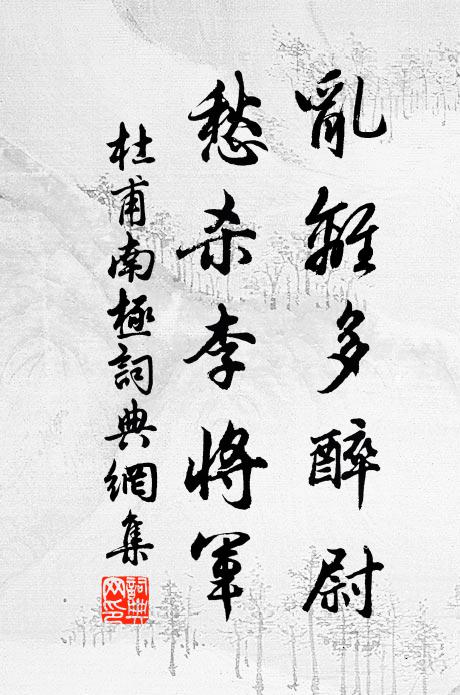 亂離多醉尉
愁杀李將軍
杜甫南極詞典網集